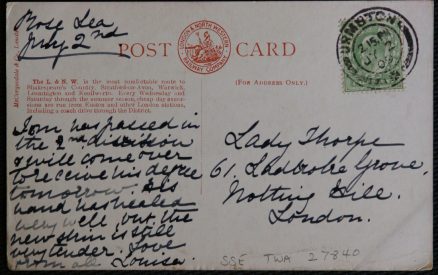 Rose Lea
July 2nd
POST CARD
LONDON & NORTH WESTERN
RAILWAY COMPANY
URMSTON
2 15 PM
JY 2
The L. & N.W. is the most comfortable route to
Shakespeare's Country, Stratford-on-Avon, Warwick,
Leamington and Kenilworth. Every Wednesday and
Saturday through the summer season, cheap day excur-
sions are run from Euston and other London stations,
including a coach drive through the District.
(For Address Only.)
Tom has passed in
the 2nd division
& will come over
to receive his degree
tomorrow. His
hand has healed
very well, but the
new skin is still
very tender. Love
from all. Louisa.
Lady Thorpe
61. Ladbroke Grove,
Notting Hill.
London.
SSE TWA 27840